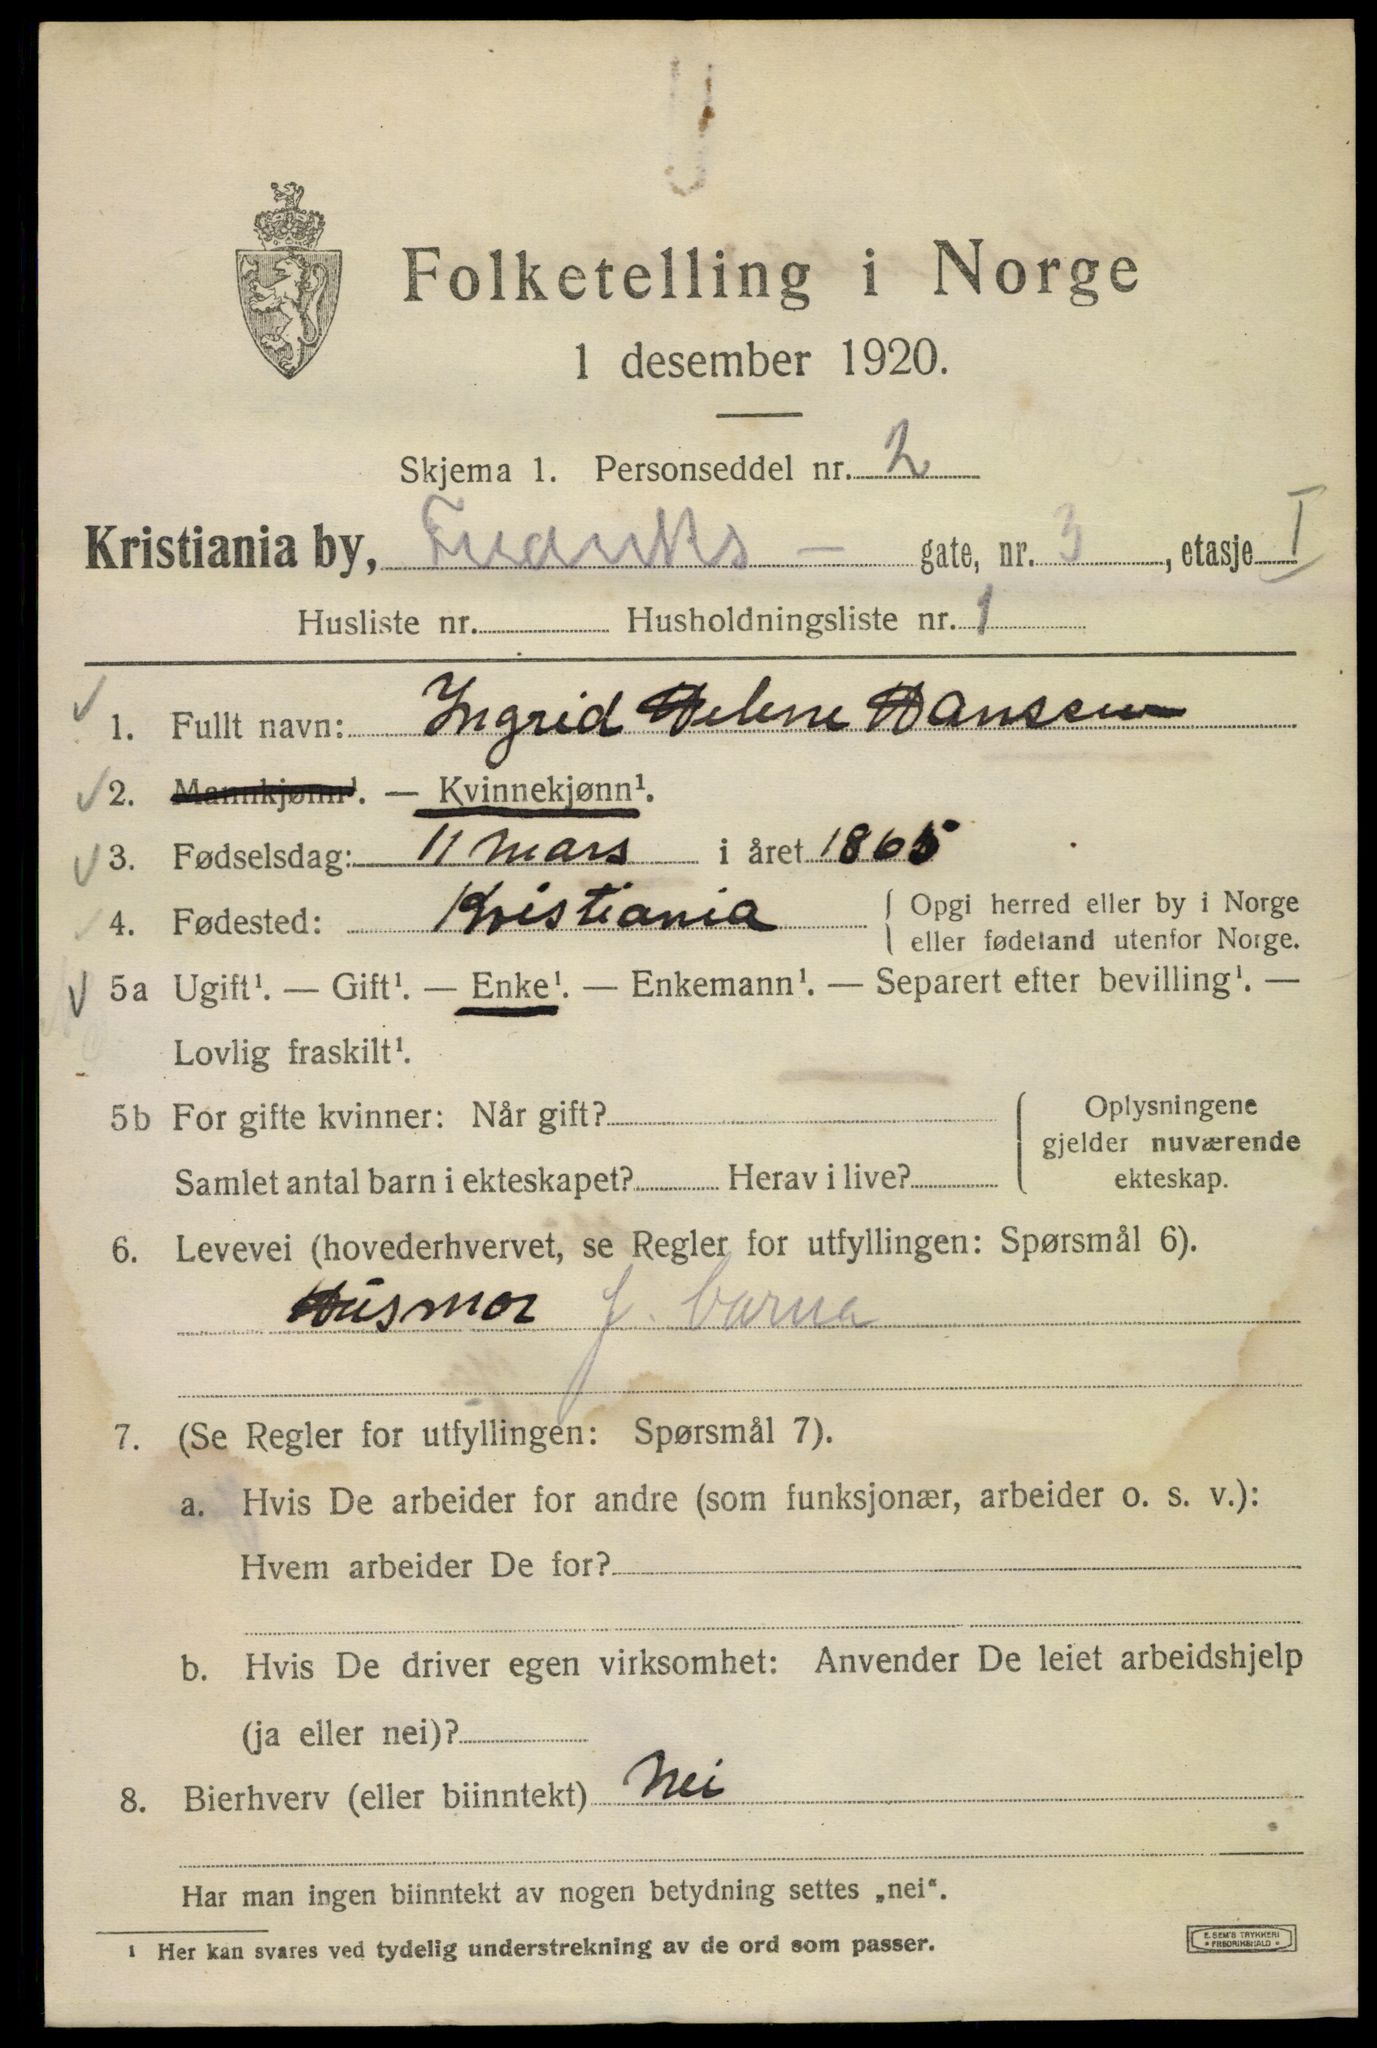 Folketelling i Norge
1 desember 1920.
Skjema 1. Personseddel nr. 2
Kristiania by, Fredriks - gate, nr. 3, etasje I
Husliste nr. Husholdningsliste nr. 1
1. Fullt navn: Ingrid Helene Hanssen
2. Mannkjønn¹. — Kvinnekjønn¹.
3. Fødselsdag: 11 mars i året 1865
4. Fødested: Kristiania Opgi herred eller by i Norge
eller fødeland utenfor Norge.
5a Ugift¹. — Gift¹. — Enke¹. — Enkemann¹. — Separert efter bevilling¹. —
Lovlig fraskilt¹.
5b For gifte kvinner: Når gift? Oplysningene
gjelder nuværende
Samlet antal barn i ekteskapet? Herav i live? ekteskap.
6. Levevei (hovederhvervet, se Regler for utfyllingen: Spørsmål 6).
Husmor f. barna
7. (Se Regler for utfyllingen: Spørsmål 7).
a. Hvis De arbeider for andre (som funksjonær, arbeider o. s. v.):
Hvem arbeider De for?
b. Hvis De driver egen virksomhet: Anvender De leiet arbeidshjelp
(ja eller nei)?
8. Bierhverv (eller biinntekt) Nei
Har man ingen biinntekt av nogen betydning settes „nei“.
¹ Her kan svares ved tydelig understrekning av de ord som passer.
E. SEM'S TRYKKERI
• FREDRIKSHALD •